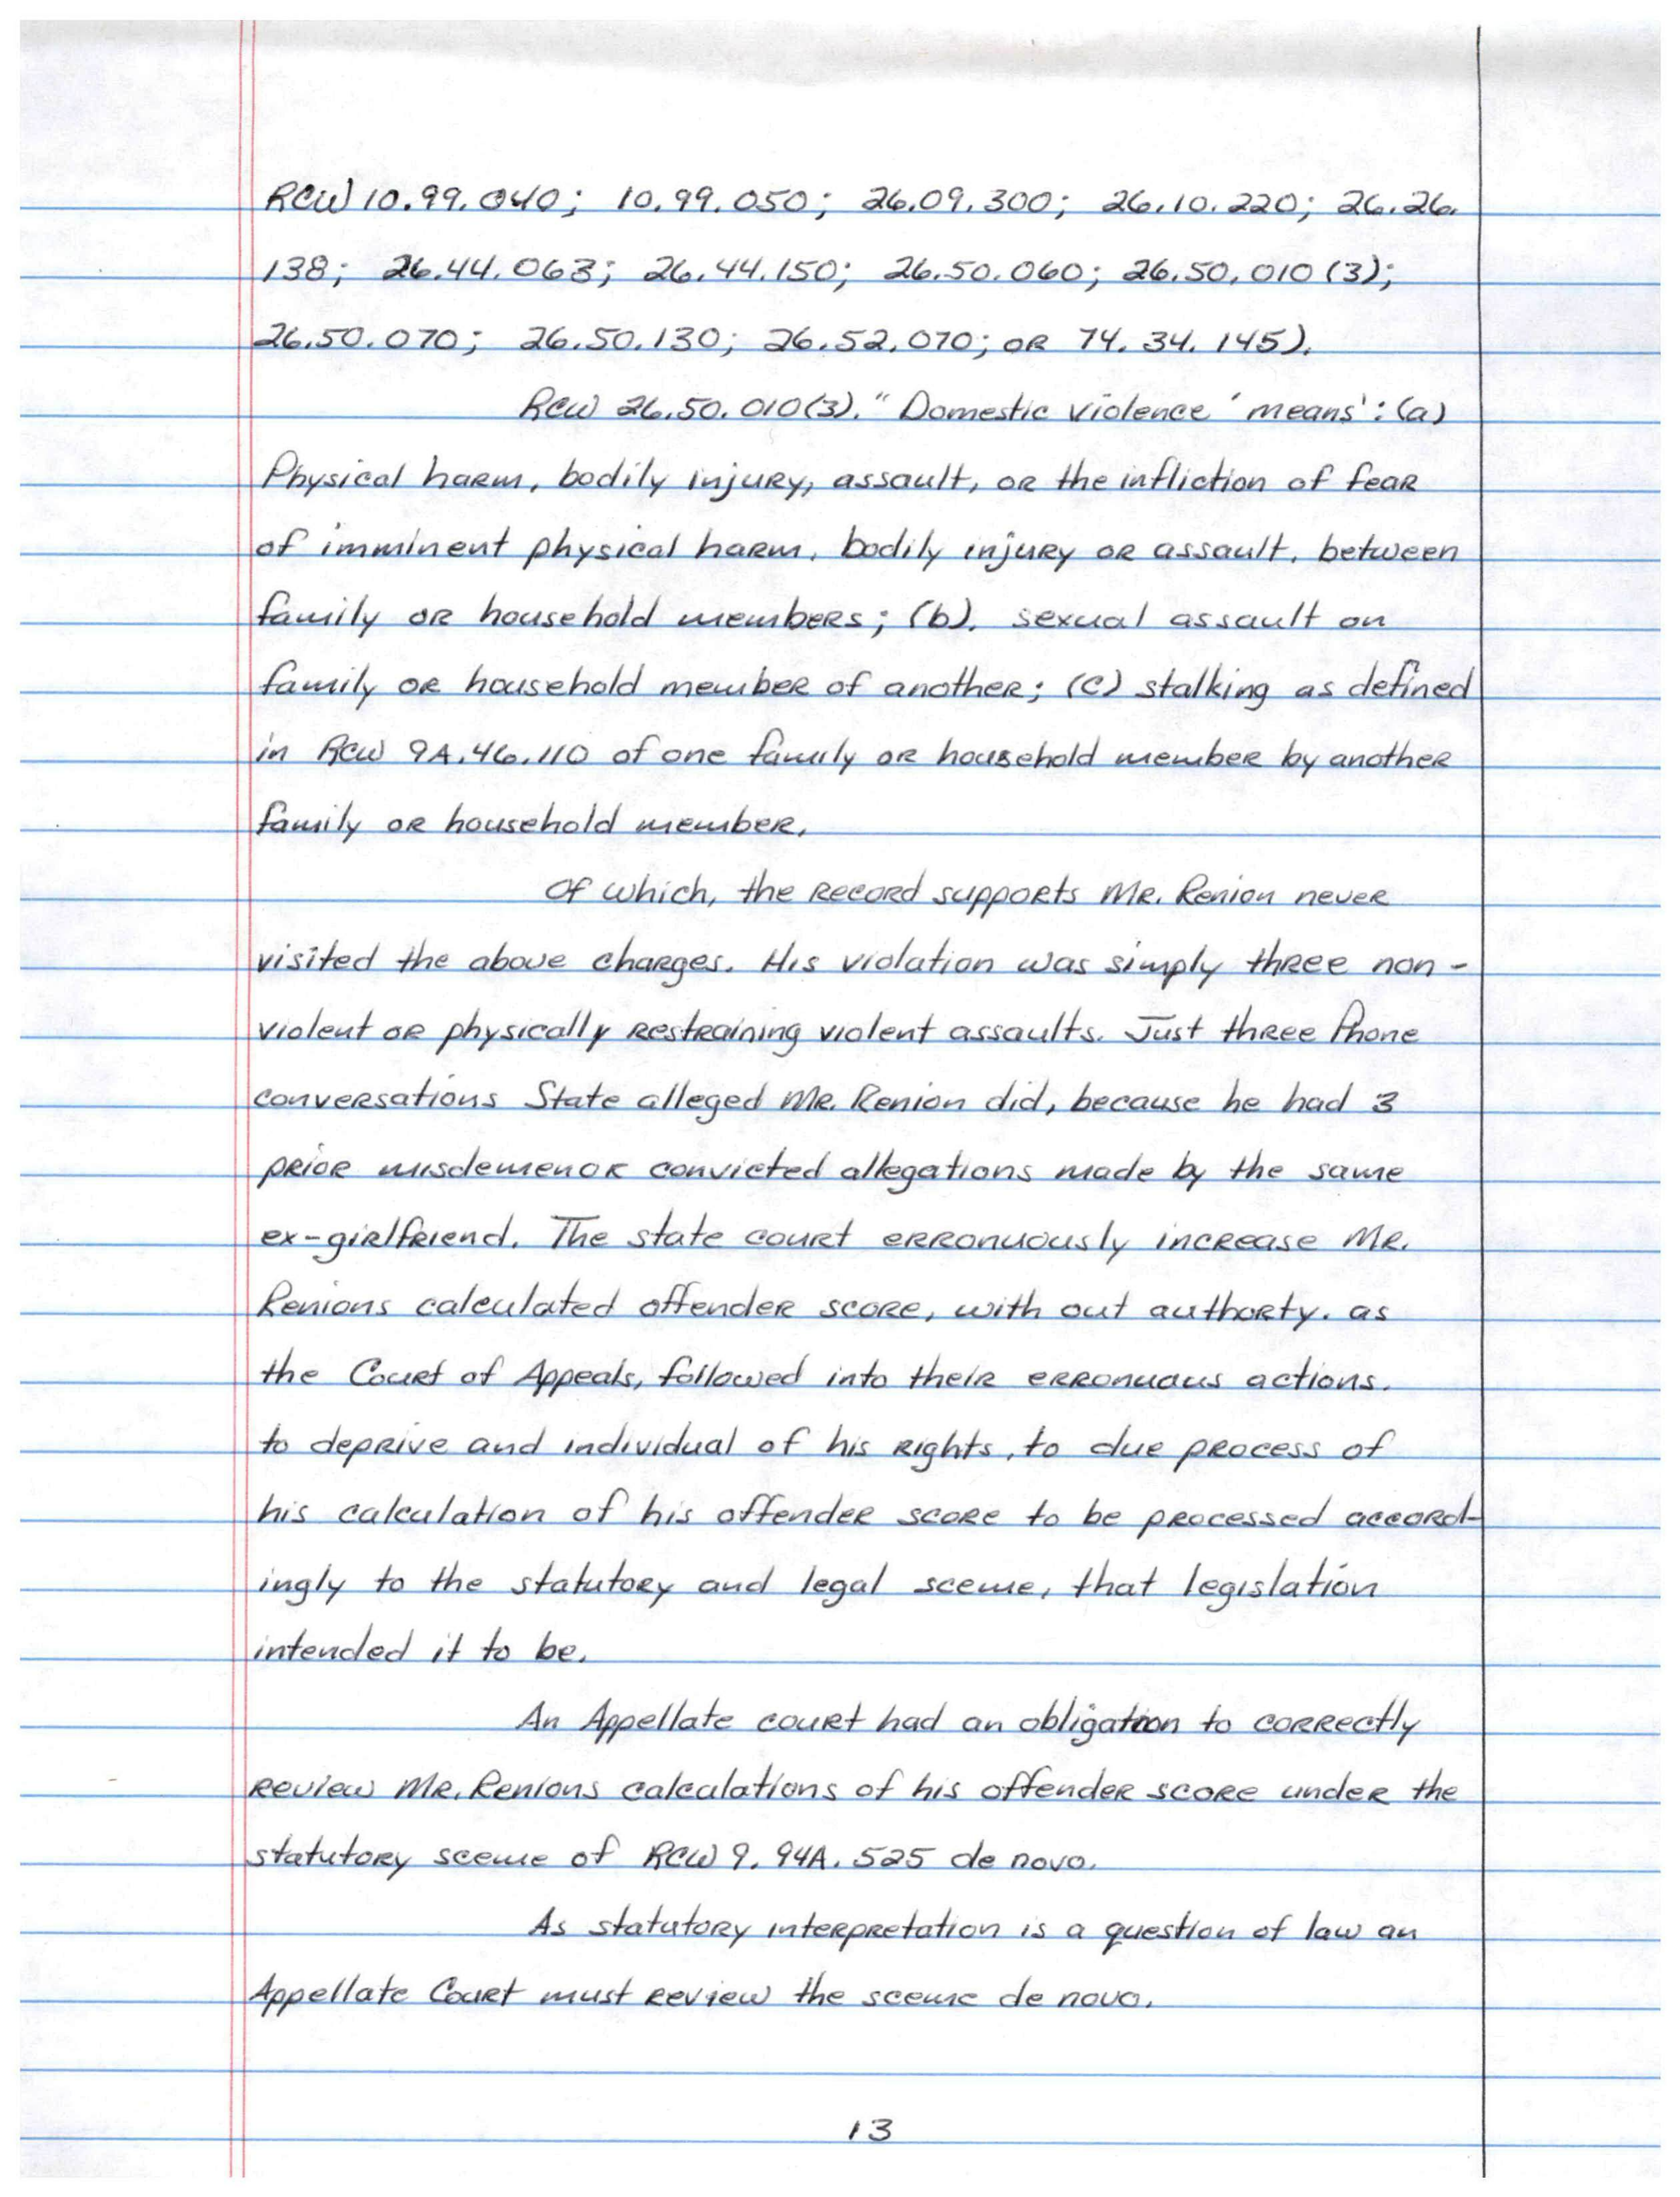 RCW 10.99.040; 10.99.050; 26.09.300; 26.10.220; 26.26.
138; 26.44.063; 26.44.150; 26.50.060; 26.50.010 (3);
26.50.070; 26.50.130; 26.52.070; OR 74.34.145).
RCW 26.50.010(3). " Domestic violence ' means': (a)
Physical harm, bodily injury, assault, or the infliction of fear
of imminent physical harm, bodily injury or assault, between
family or household members; (b). sexual assault on
family or household member of another; (c) stalking as defined
in RCW 9A.46.110 of one family or household member by another
family or household member.
Of which, the record supports Mr. Renion never
visited the above charges. His violation was simply three non-
violent or physically restraining violent assaults. Just three Phone
conversations State alleged Mr. Renion did, because he had 3
prior misdemenor convicted allegations made by the same
ex-girlfriend. The state court erronuously increase Mr.
Renions calculated offender score, with out authorty. as
the Court of Appeals, followed into their erronuous actions.
to deprive and individual of his rights, to due process of
his calculation of his offender score to be processed accord-
ingly to the statutory and legal sceme, that legislation
intended it to be.
An Appellate court had an obligation to correctly
review Mr. Renions calculations of his offender score under the
statutory sceme of RCW 9.94A.525 de novo.
As statutory interpretation is a question of law an
Appellate Court must review the sceme de novo.
13